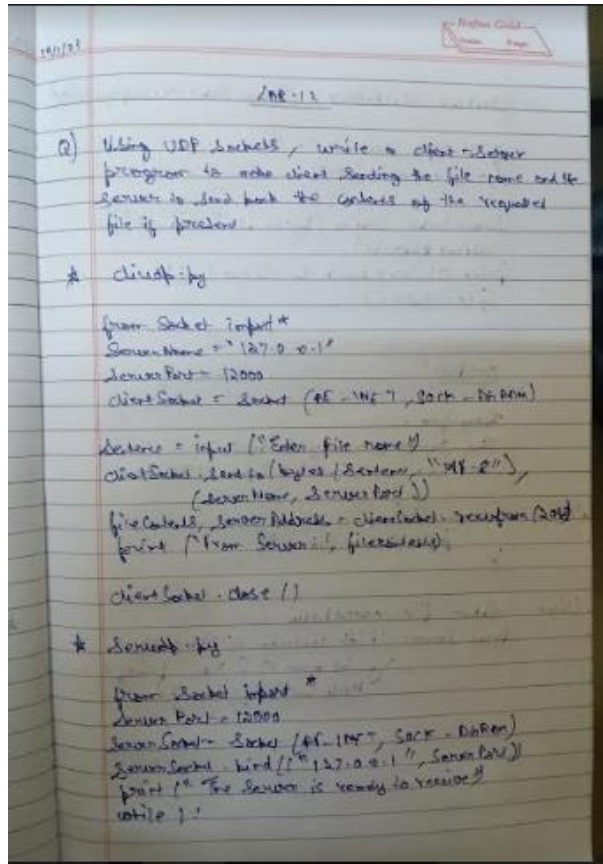 LAB-12
Q) Using UDP Sockets, write a client-server
program to make client sending the file name and the
server to send back the contents of the requested
file if present.
* cliudp.py
from socket import *
ServerName = "127.0.0.1"
ServerPort = 12000
clientSocket = socket (AF_INET, SOCK_DGRAM)
Sentence = input ("Enter file name")
clientSocket.sendto (bytes (Sentence, "utf-8"),
(ServerName, ServerPort))
fileContents, serverAddress = clientSocket.recvfrom (2048)
print ("From Server:", fileContents)
clientSocket.close ()
* Serudp.py
from socket import *
ServerPort = 12000
ServerSocket = Socket (AF_INET, SOCK_DGRAM)
ServerSocket.bind (("127.0.0.1", ServerPort))
print ("The Server is ready to receive")
while 1: